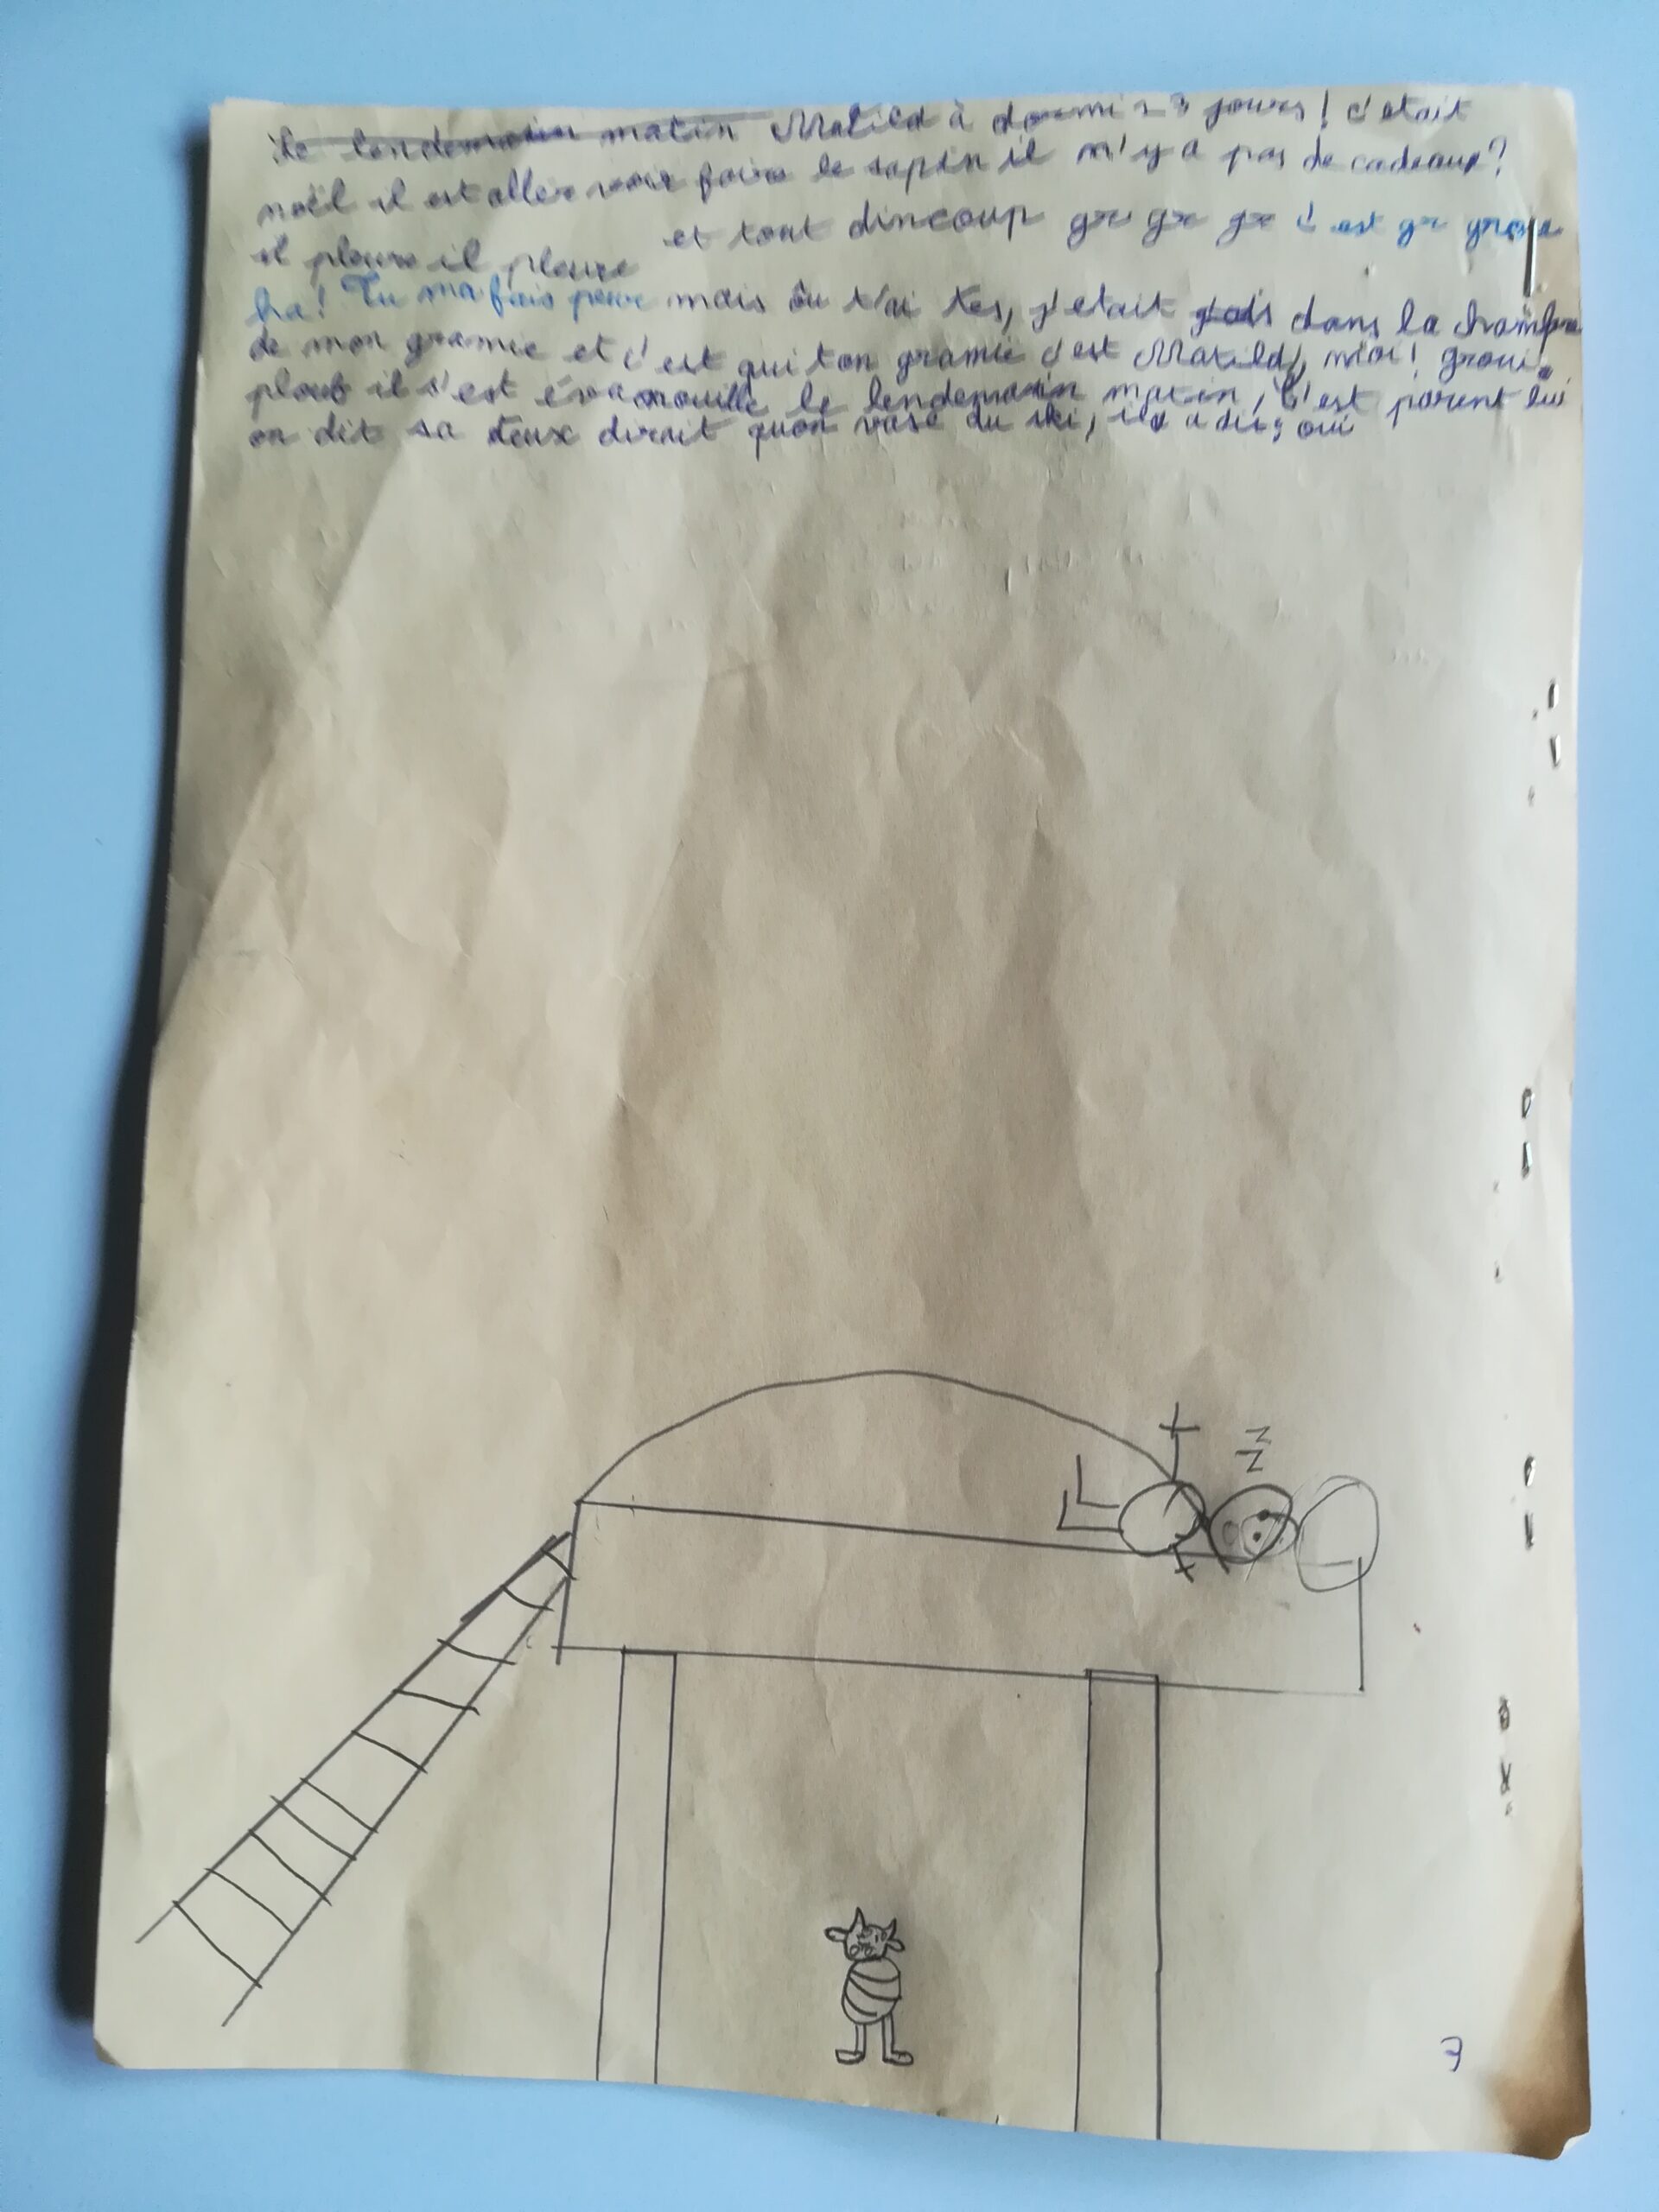 Le lendemain matin Matild à dormi 3 jours! c'etait
noël il est aller voir faire le sapin il n'y a pas de cadeaux?
il pleure il pleure et tout dincoup gr gr gr c'est gr
ha! Tu ma fais peur mais ôu t'ai tes, j'etait dans la chambre
de mon gramie et c'est qui ton gramie c'est Matild, moi! groui
plouf il s'est évanouille le lendemain matin, c'est parent lui
on dit sa teux dirait quon vase du ski, il a dit; oui
Z
Z
3